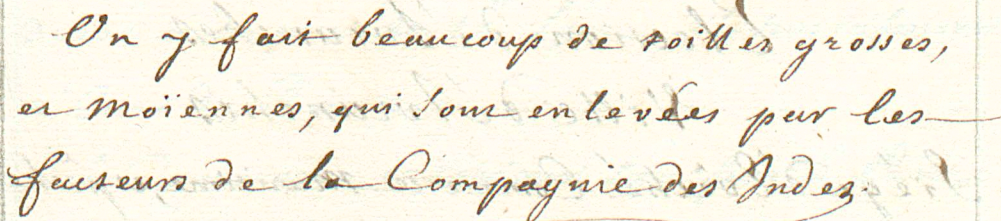 On y fait beaucoup de toilles grosses,
et moïennes, qui sont enlevées par les
facteurs de la Compagnie des Indes.